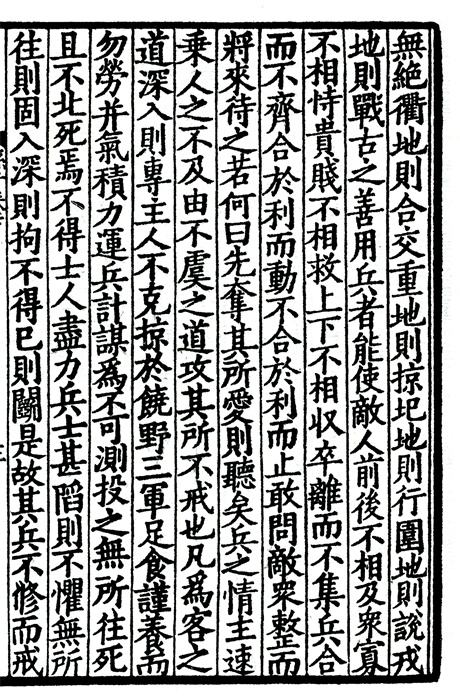 無絶衢地則合交重地則掠圯地則行圍地則說戎
地則戰古之善用兵者能使敵人前後不相及衆寡
不相恃貴賤不相救上下不相収卒離而不集兵合
而不齊合於利而動不合於利而止敢問敵衆整而
將來待之若何曰先奪其所愛則聽矣兵之情主速
乗人之不及由不虞之道攻其所不戒也凡爲客之
道深入則專主人不克掠於饒野三軍足食謹養而
勿勞并氣積力運兵計謀爲不可測投之無所往死
且不北死焉不得士人盡力兵士甚陷則不懼無所
往則固入深則拘不得已則鬭是故其兵不修而戒